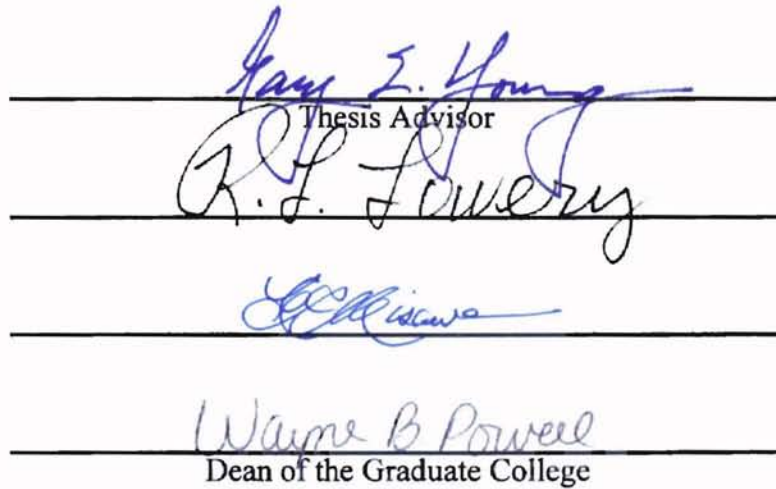 Gary E. Young
Thesis Advisor
R. L. Lowery
Wayne B Powell
Dean of the Graduate College